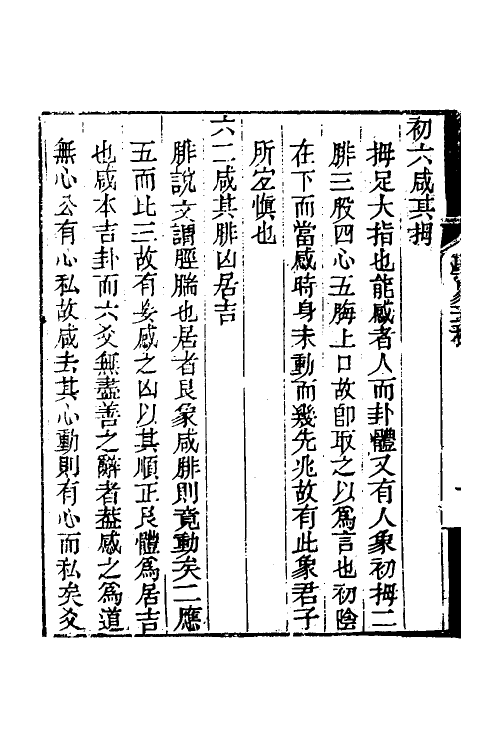 初六咸其拇
拇足大指也能感者人而卦體又有人象初拇二
腓三股四心五脢上口故卽取之以爲言也初陰
在下而當感時身未動而幾先兆故有此象君子
所宜愼也
六二咸其腓凶居吉
腓說文謂脛腨也居者艮象咸腓則竟動矣二應
五而比三故有妄感之凶以其順正艮體爲居吉
也咸本吉卦而六爻無盡善之辭者葢感之爲道
無心公有心私故咸去其心動則有心而私矣爻